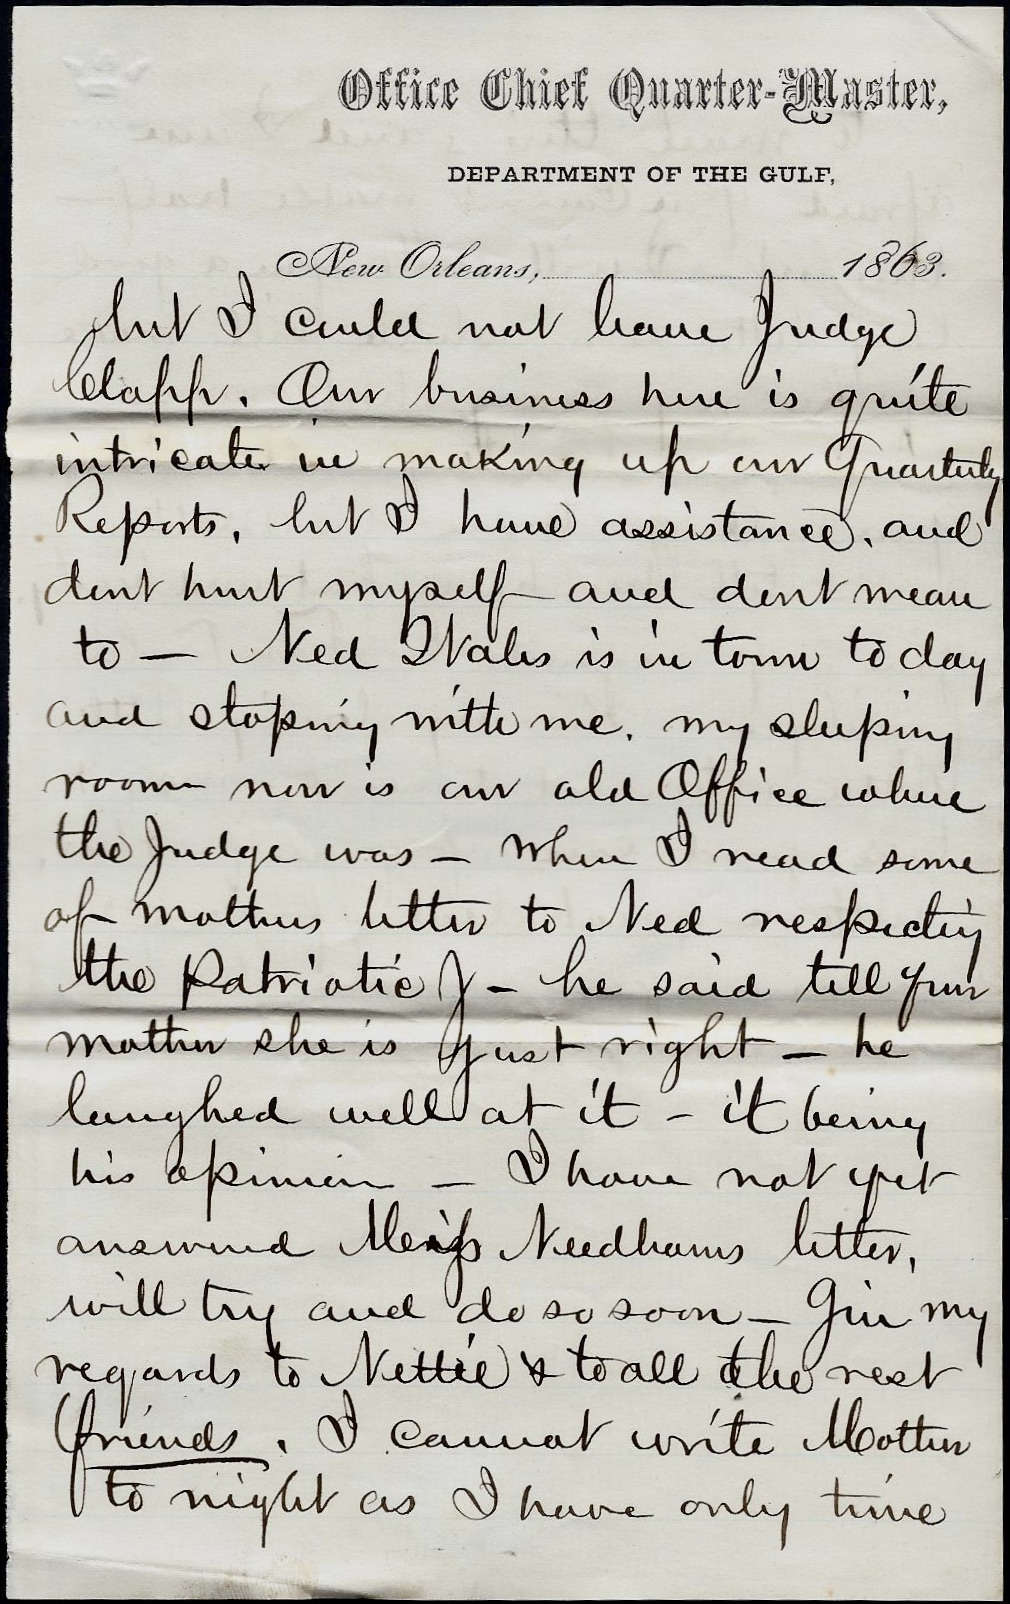 Office Chief Quarter-Master,
DEPARTMENT OF THE GULF,
New Orleans, 1863.
but I could not leave Judge
Clapp. Our business here is quite
intricate in making up our Quarterly
Reports, but I have assistance, and
dont hurt myself and dont mean
to — Ned Wales is in town to day
and stoping with me. my sleeping
room now is our old Office where
the Judge was — When I read some
of mothers letter to Ned respecting
the Patriotic J — he said tell your
mother she is just right — he
laughed well at it — it being
his opinion — I have not yet
answered Needhams letter,
will try and do so soon — Give my
regards to Nettie & to all the rest
friends. I cannot write Mother
to night as I have only time